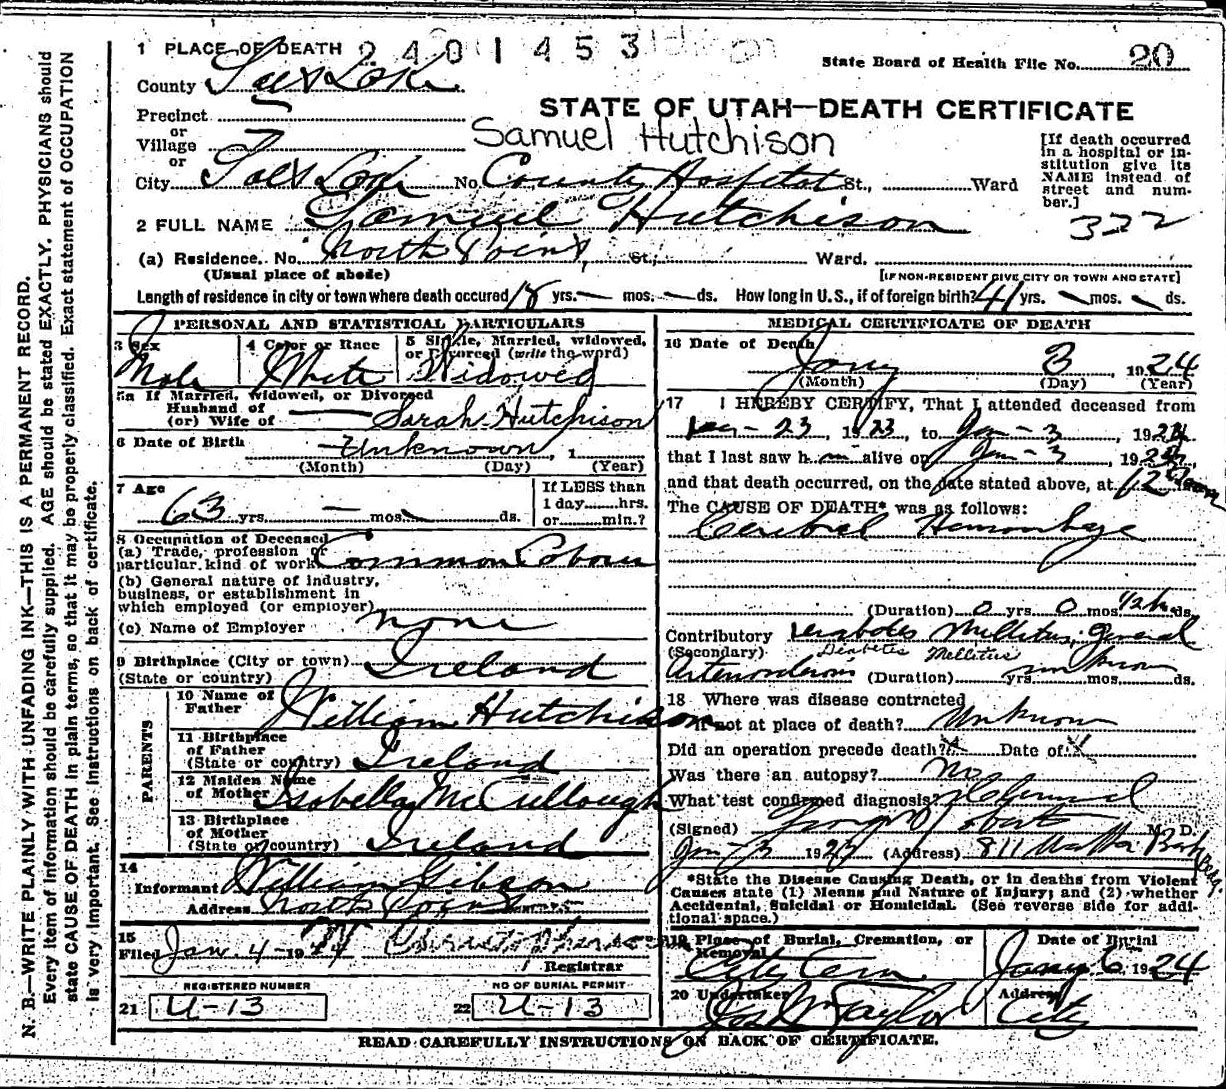 1 PLACE OF DEATH 2401453
State Board of Health File No. 20
County Salt Lake
STATE OF UTAH—DEATH CERTIFICATE
Precinct
or
Village
Samuel Hutchison
or
City Salt Lake No. County Hospital St., Ward
[If death occurred in a hospital or institution give its NAME instead of street and number.]
322
2 FULL NAME Samuel Hutchison
(a) Residence. No. North Point, St., Ward.
(Usual place of abode) [IF NON-RESIDENT GIVE CITY OR TOWN AND STATE]
Length of residence in city or town where death occured 18 yrs. — mos. — ds. How long in U.S., if of foreign birth? 41 yrs. — mos. — ds.
PERSONAL AND STATISTICAL PARTICULARS
3 Sex 4 Color or Race 5 Single, Married, widowed, or Divorced (write the word)
Male White Widowed
5a If Married, widowed, or Divorced
Husband of
(or) Wife of — Sarah Hutchison
6 Date of Birth —Unknown, 1
(Month) (Day) (Year)
7 Age
63 yrs. — mos. ds.
If LESS than
1 day......hrs.
or......min.?
8 Occupation of Deceased
(a) Trade, profession or
particular kind of work Common Laborer
(b) General nature of industry,
business, or establishment in
which employed (or employer)
(c) Name of Employer none
9 Birthplace (City or town) Ireland
(State or country)
PARENTS
10 Name of
Father William Hutchison
11 Birthplace
of Father
(State or country) Ireland
12 Maiden Name
of Mother Isabella McCullough
13 Birthplace
of Mother
(State or country) Ireland
14
Informant William Gibson
Address North Point
15
Filed Jan. 4-1924
Registrar
REGISTERED NUMBER NO OF BURIAL PERMIT
21 U-13 22 U-13
MEDICAL CERTIFICATE OF DEATH
16 Date of Death Jany 3, 1924
(Month) (Day) (Year)
17 I HEREBY CERTIFY, That I attended deceased from
Dec - 23, 1923, to Jan - 3, 1924
that I last saw him alive on Jan - 3, 1924,
and that death occurred, on the date stated above, at 12
The CAUSE OF DEATH* was as follows:
Cerebral Hemorrhage
(Duration) 0 yrs. 0 mos. 1/2 h ds.
Contributory Diabetes Mellitus, General
(Secondary) Diabetes Mellitus
Arteriosclerosis (Duration) yrs. unknown mos. ds.
18 Where was disease contracted
if not at place of death? Unknown
Did an operation precede death? Date of
Was there an autopsy? No
What test confirmed diagnosis? Clinical
(Signed) M. D.
Jan-3 1924 (Address) 811 Walker Bank Bldg.
*State the Disease Causing Death, or in deaths from Violent
Causes state (1) Means and Nature of Injury; and (2) whether
Accidental, Suicidal or Homicidal. (See reverse side for additional space.)
19 Place of Burial, Cremation, or Removal Date of Burial
City Cem. Jany 6, 1924
20 Undertaker Address
Jos Wm Taylor City
READ CAREFULLY INSTRUCTIONS ON BACK OF CERTIFICATE.
N. B.—WRITE PLAINLY WITH UNFADING INK—THIS IS A PERMANENT RECORD.
Every item of information should be carefully supplied. AGE should be stated EXACTLY. PHYSICIANS should
state CAUSE OF DEATH in plain terms, so that it may be properly classified. Exact statement of OCCUPATION
is very important. See instructions on back of certificate.